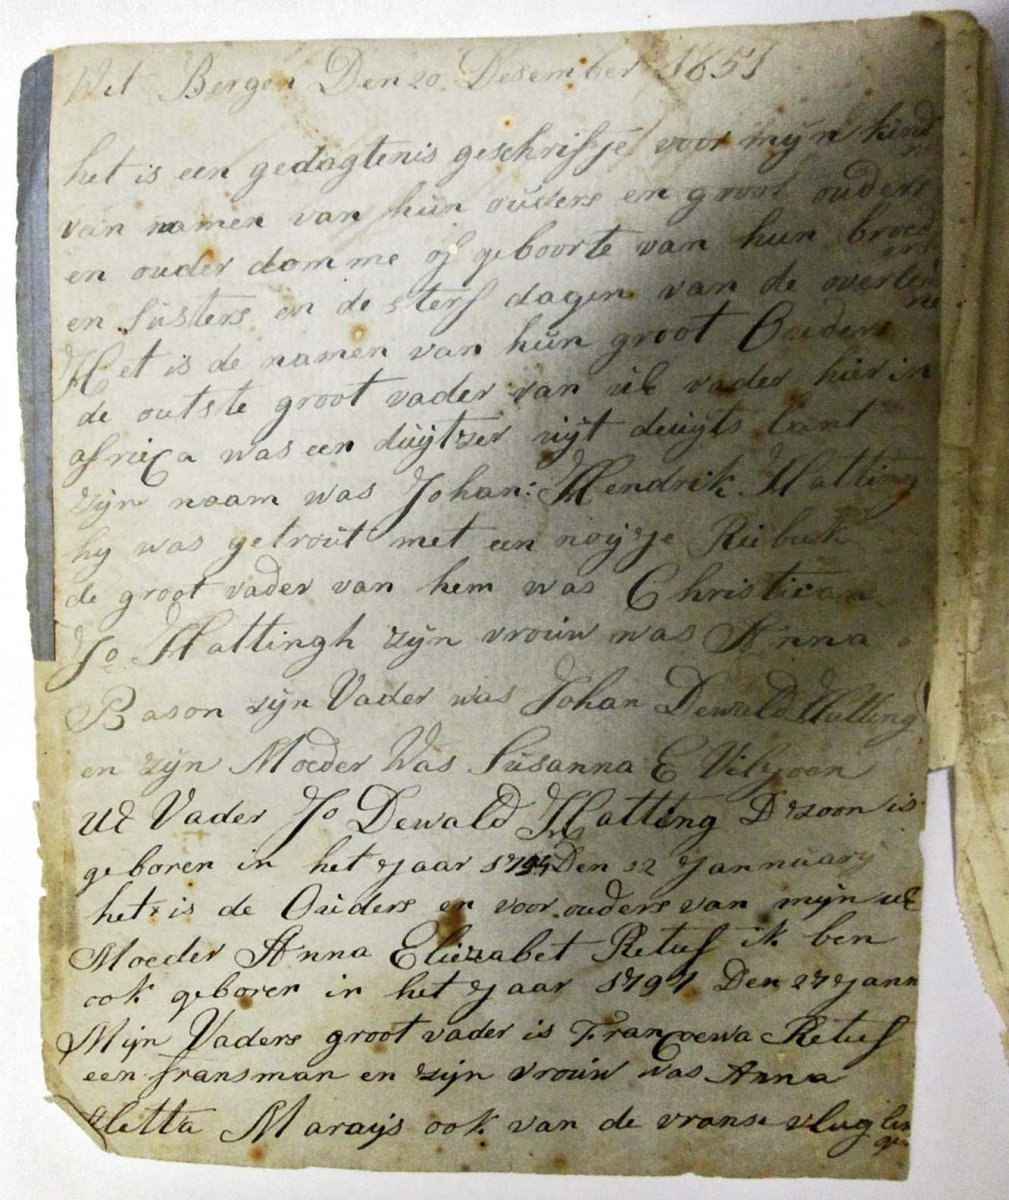 Wit Bergen Den 20 Desember 1851
het is een gedagtenis geschrifje voor mijn kind
van namen van hun ouders en groot ouders
en ouder domme of geboorte van hun broed
ers
en susters en de sterf dagen van de overlei
ne
Het is de namen van hun groot Ouders
de outste groot vader van ue vader hier in
africa was een duijtzer uijt deuijts lant
zijn naam was Johan: Hendrik Hatting
hy was getrout met een noijtje
de groot vader van hem was Christiean
Jo Hattingh zijn vrouw was Anna
Bason zijn Vader was Johan Dewald Hatting
en zijn Moeder Was Susanna E Viljoen
UE Vader Jo Dewald Hatting Dzoon is
geboren in het Jaar Den 12 Jannuarij
het is de Ouders en voor ouders van mijn ue
Moeder Anna Eliezabet Retief ik ben
ook geboren in het Jaar 1797 Den 27 Jann
Mijn Vaders groot vader is Francoewa Retief
een fransman en zijn vrouw was Anna
Aletta Maraijs ook van de vranse vluglin
ge